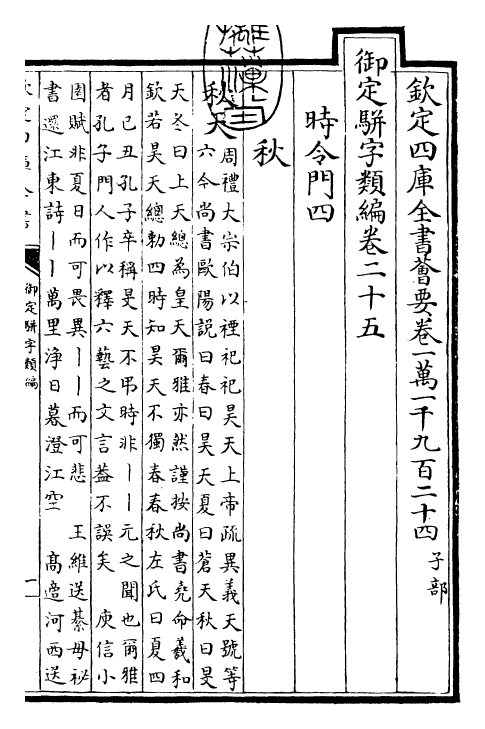 欽定四庫全書薈要卷一萬一千九百二十四 子部
御定駢字類編卷二十五
時令門四
秋
秋天
周禮大宗伯以禋祀祀昊天上帝疏異義天號等
六今尚書歐陽説曰春曰昊天夏曰蒼天秋曰旻
天冬曰上天總為皇天爾雅亦然謹按尚書堯命羲和
欽若昊天總勅四時知昊天不獨春春秋左氏曰夏四
月己丑孔子卒稱旻天不弔時非丨丨元之聞也爾雅
者孔子門人作以釋六藝之文言葢不誤矣 庾信小
園賦非夏日而可畏異丨丨而可悲 王維送綦毋祕
書還江東詩丨丨萬里浄日暮澄江空 髙適河西送
御定駢字類編
一